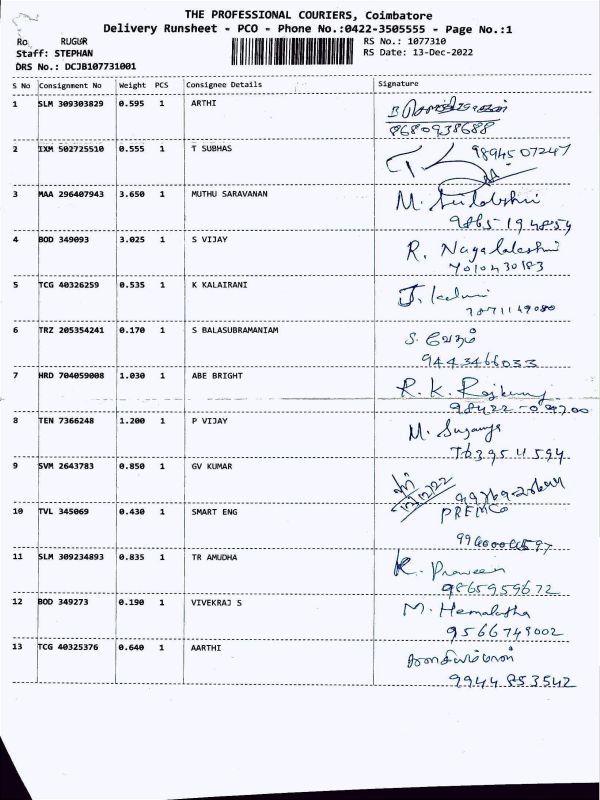 THE PROFESSIONAL COURIERS, Coimbatore
Delivery Runsheet - PCO - Phone No.:0422-3505555 - Page No.:1
Ro RUGUR
RS No.: 1077310
Staff: STEPHAN
RS Date: 13-Dec-2022
DRS No.: DCJB107731001
S No Consignment No Weight PCS Consignee Details Signature
1 SLM 309303829 0.595 1 ARTHI
8680938688
2 IXM 502725510 0.555 1 T SUBHAS 98945 07247
3 MAA 296407943 3.650 1 MUTHU SARAVANAN M.
9865-194854
4 BOD 349093 3.025 1 S VIJAY R.
7010430183
5 TCG 40326259 0.535 1 K KALAIRANI J.
7871149080
6 TRZ 205354241 0.170 1 S BALASUBRAMANIAM
9443466033
7 HRD 704059008 1.030 1 ABE BRIGHT R. K. Rajkumar
8 TEN 7366248 1.200 1 P VIJAY M. Suganya
9 SVM 2643783 0.850 1 GV KUMAR
10 TVL 345069 0.430 1 SMART ENG PREMCO
11 SLM 309234893 0.835 1 TR AMUDHA K. Praveen
9865959672
12 BOD 349273 0.190 1 VIVEKRAJ S M. Hemalatha
9566749002
13 TCG 40325376 0.640 1 AARTHI
9944853542